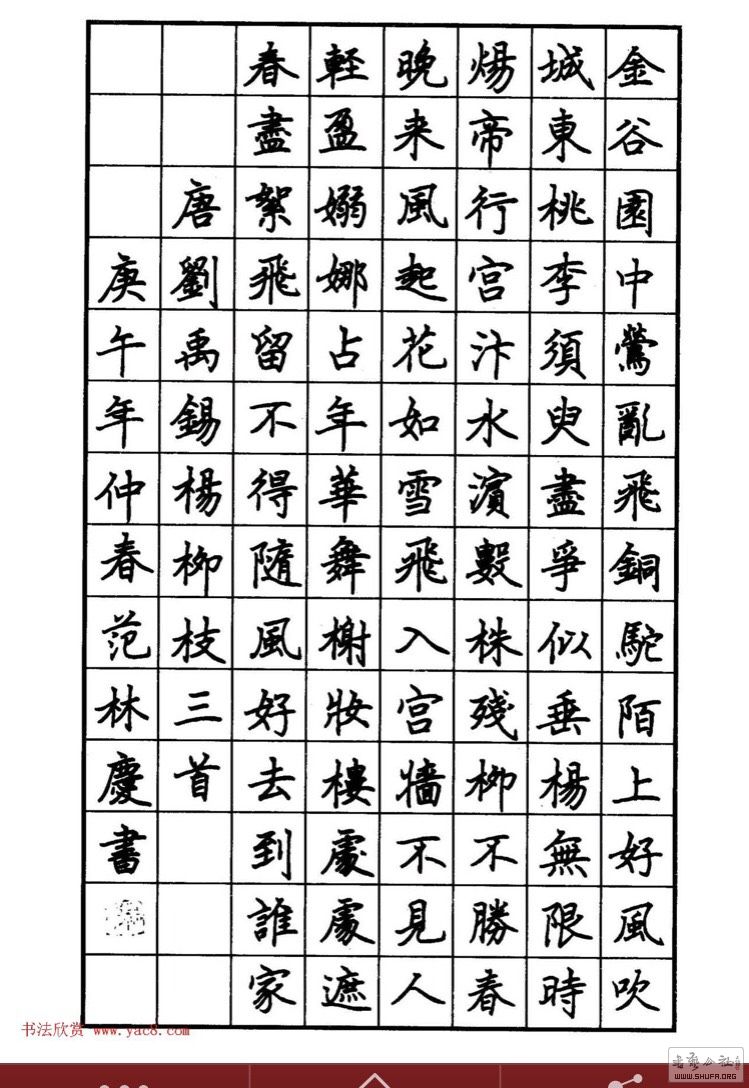 金谷園中鶯亂飛銅駝陌上好風吹
城東桃李須臾盡爭似垂楊無限時
煬帝行宮汴水濱數株殘柳不勝春
晚来風起花如雪飛入宮墻不見人
輕盈嫋娜占年華舞榭妝樓處處遮
春盡絮飛留不得隨風好去到誰家
唐劉禹錫楊柳枝三首
庚午年仲春范林慶書
书法欣赏 www.yac8.com
WWW.SHUFA.ORG